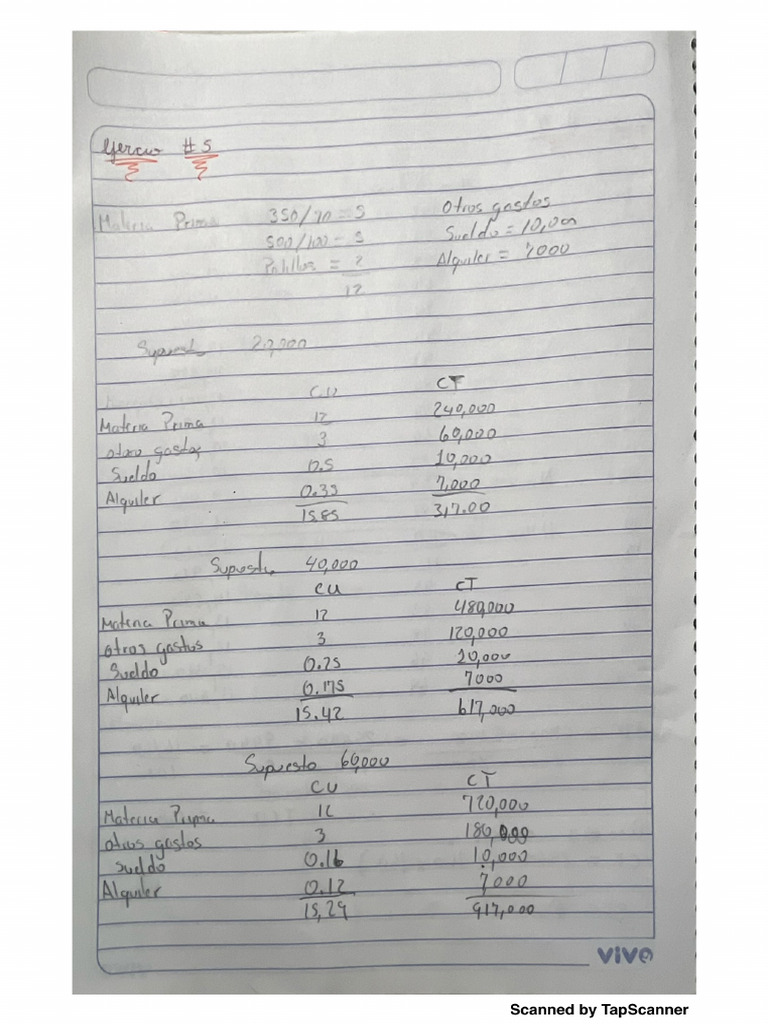 Ejercio #5
Materia Prima 350/70 = 5 Otros gastos
500/100 = 5 Sueldo = 10,000
Palillos = 2 Alquiler = 7000
12
Supuesto 20,000
CU CT
Materia Prima 12 240,000
otros gastos 3 60,000
Sueldo 0.5 10,000
Alquiler 0.35 7,000
15.85 317.00
Supuesto 40,000
CU CT
Materia Prima 12 480,000
otros gastos 3 120,000
Sueldo 0.25 10,000
Alquiler 0.175 7000
15.42 617,000
Supuesto 60,000
CU CT
Materia Prima 12 720,000
otros gastos 3 180,000
Sueldo 0.16 10,000
Alquiler 0.12 7000
15,29 917,000
vive
Scanned by TapScanner